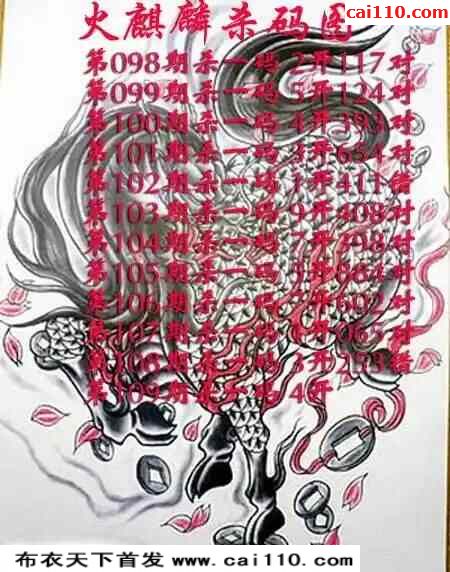 cai110.com
火麒麟杀码图
第098期杀一码 2开117对
第099期杀一码 5开124对
第100期杀一码 4开393对
第101期杀一码 3开654对
第102期杀一码 1开411错
第103期杀一码 9开408对
第104期杀一码 7开798对
第105期杀一码 3开884对
第106期杀一码 开602对
第107期杀一码 开065对
第108期杀一码 3开253错
第109期杀一码 4开
布衣天下首发 www.cai110.com